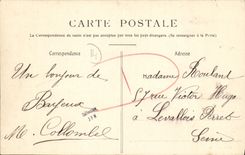 CARTE POSTALE
La Correspondance au recto n'est pas acceptée par tous les pays étrangers (Se renseigner à la Poste)
Correspondance
Adresse
Un bonjour de
Bayeux
M. Collombel
Madame Roulant
57 rue Victor Hugo
à Levallois Perret
Seine